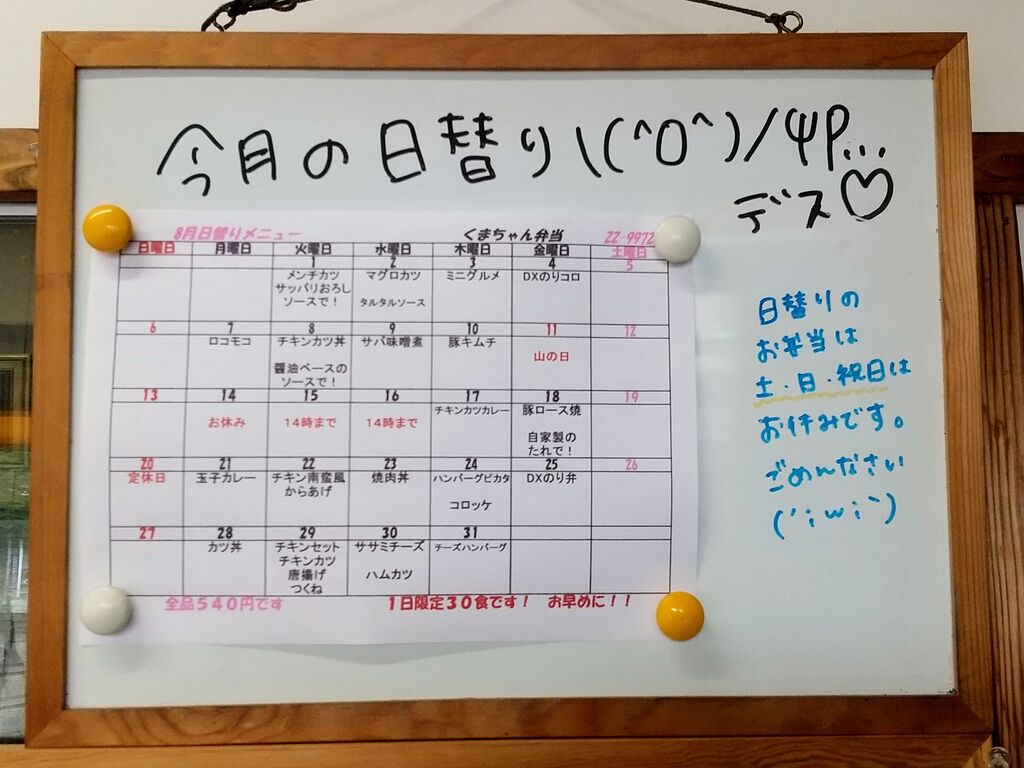 今月の日替り\(^O^)/ΨP...
デス♡
8月日替りメニュー くまちゃん弁当 22-9972
日曜日 月曜日 火曜日 水曜日 木曜日 金曜日 土曜日
1 2 3 4 5
メンチカツ マグロカツ ミニグルメ DXのりコロ
サッパリおろし
ソースで! タルタルソース
6 7 8 9 10 11 12
ロコモコ チキンカツ丼 サバ味噌煮 豚キムチ 山の日
醤油ベースの
ソースで!
13 14 15 16 17 18 19
お休み 14時まで 14時まで チキンカツカレー 豚ロース焼
自家製の
たれで!
20 21 22 23 24 25 26
定休日 玉子カレー チキン南蛮風 焼肉丼 ハンバーグピカタ DXのり弁
からあげ コロッケ
27 28 29 30 31
カツ丼 チキンセット ササミチーズ チーズハンバーグ
チキンカツ
唐揚げ ハムカツ
つくね
全品540円です 1日限定30食です! お早めに!!
日替りの
お弁当は
土・日・祝日は
お休みです。
ごめんなさい
(´;ω;`)